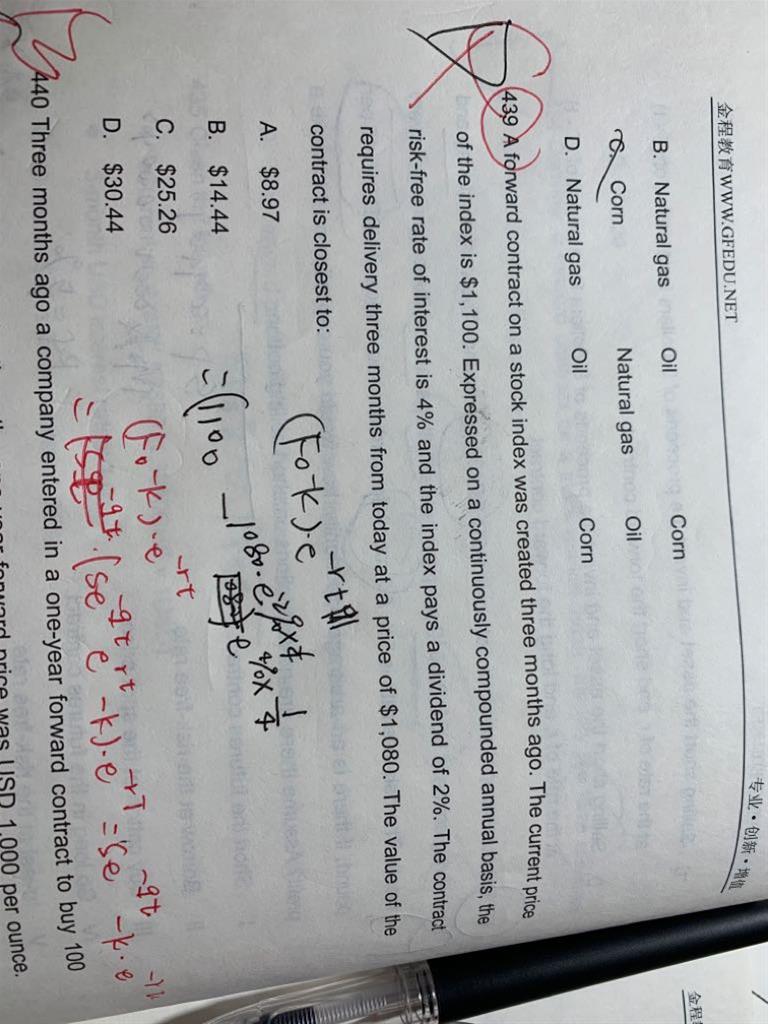 金程教育WWW.GFEDU.NET
专业·创新·增值
B. Natural gas Oil Corn
C. Corn Natural gas Oil
D. Natural gas Oil Corn
439 A forward contract on a stock index was created three months ago. The current price
of the index is $1,100. Expressed on a continuously compounded annual basis, the
risk-free rate of interest is 4% and the index pays a dividend of 2%. The contract
requires delivery three months from today at a price of $1,080. The value of the
contract is closest to:
A. $8.97
B. $14.44
C. $25.26
D. $30.44
(F0-k)·e -rt
=(1100 -1080·e -2%×4
e 4%×1/4
(F0-k)·e -rt
=
(se -qt e rt -k)·e -rT = se -qt -k·e
440 Three months ago a company entered in a one-year forward contract to buy 100
forward price was USD 1,000 per ounce.
金程